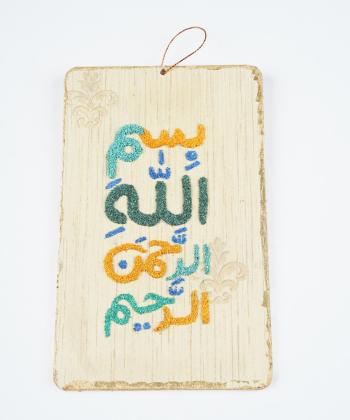 بِسْمِ
اللَّهِ
الرَّحْمَنِ
الرَّحِيمِ